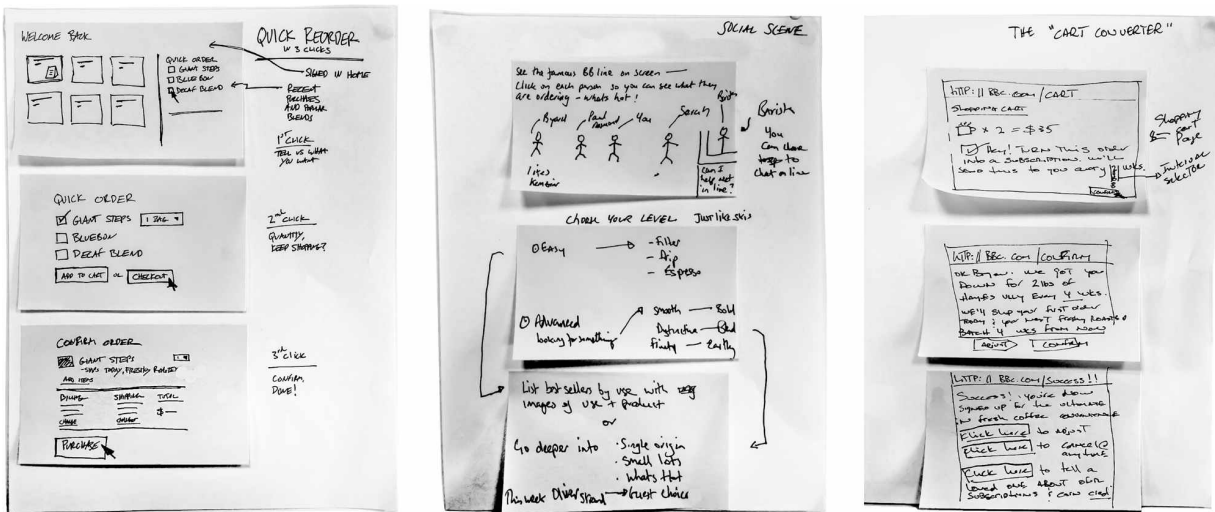 WELCOME BACK
QUICK ORDER
GIANT STEPS
BLUEBON
DECAF BLEND
QUICK REORDER
W 3 CLICKS
SIGNED IN HOME
RECENT
PURCHASES
AND POPULAR
BLENDS
1ST CLICK
TELL US WHAT
YOU WANT
QUICK ORDER
GIANT STEPS 1 BAG
BLUEBON
DECAF BLEND
ADD TO CART OR CHECKOUT
2nd CLICK
QUANTITY,
KEEP SHOPPING?
CONFIRM ORDER
GIANT STEPS
- SHIPS TODAY, FRESHLY ROASTED
ADD ITEMS
SHIPPING TOTAL
CHANGE CHANGE $
PURCHASE
3rd CLICK
CONFIRM,
DONE!
SOCIAL SCENE
See the famous BB line on screen
Click on each person so you can see what they
are ordering - whats hot!
Bryard Paul You Sarah
likes
can I
help next
in line?
Barista
You
Can
to
chat on line
Chose YOUR LEVEL Just like skis
Easy
- Filter
- Drip
- Espresso
Advanced
looking for something
smooth Bold
Fruity Earthy
List best sellers by use with
images of use + product
or
Go deeper into · Single origin
· Small lots
· Whats Hot
This week Oliver Strand Guest choice
THE "CART CONVERTER"
HTTP: // BBC.COM /CART
SHOPPING CART
x 2 = $35
Hey! TURN THIS ORDER
INTO A SUBSCRIPTION. WE'LL
SEND THIS TO YOU EVERY WKS.
CONFIRM
Shopping
cart
Page
Interval
selector
HTTP: // BBC.COM /CONFIRM
OK Bryan. WE GOT YOU
DOWN FOR 2 lbs OF
HAYES VLLY EVERY 4 WKS.
WE'LL SHIP YOUR FIRST ORDER
TODAY & YOUR NEXT FRESHLY ROASTED
BATCH 4 WKS FROM NOW
ADJUST CONFIRM
HTTP: // BBC.COM/SUCCESS!!
SUCCESS! YOU'RE NOW
SIGNED UP FOR THE ULTIMATE
IN FRESH COFFEE CONVENIENCE
Click here TO ADJUST
Click here TO CANCEL @
ANYTIME
Click here TO TELL A
LOVED ONE ABOUT OUR
SUBSCRIPTIONS & EARN CRED